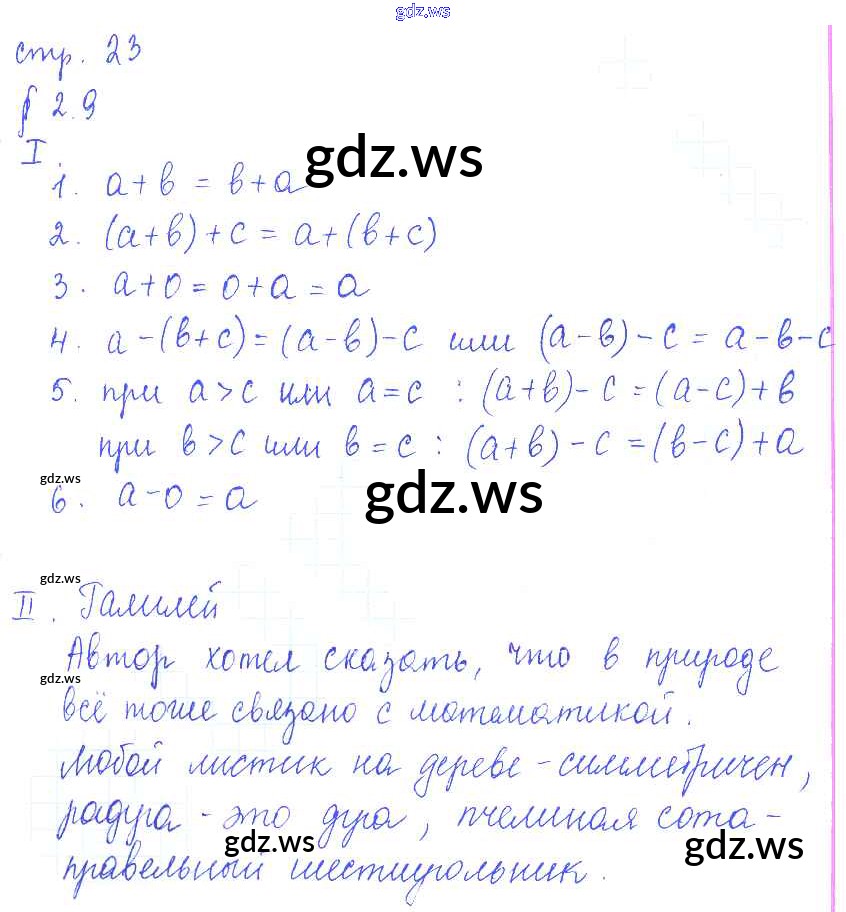 gdz.ws
стр. 23
§ 2.9
I.
gdz.ws
1. a+b = b+a
2. (a+b)+c = a+(b+c)
3. a+0 = 0+a = a
4. a-(b+c)=(a-b)-c или (a-b)-c = a-b-c
5. при a>c или a=c : (a+b)-c=(a-c)+b
при b>c или b=c : (a+b)-c=(b-c)+a
gdz.ws
6. a-0=a
gdz.ws
gdz.ws
II. Галилей
Автор хотел сказать, что в природе
gdz.ws
всё тоже связано с математикой.
Любой листик на дереве - симметричен,
радуга - это дуга, пчелиная сота -
gdz.ws
gdz.ws
правельный шестиугольник.